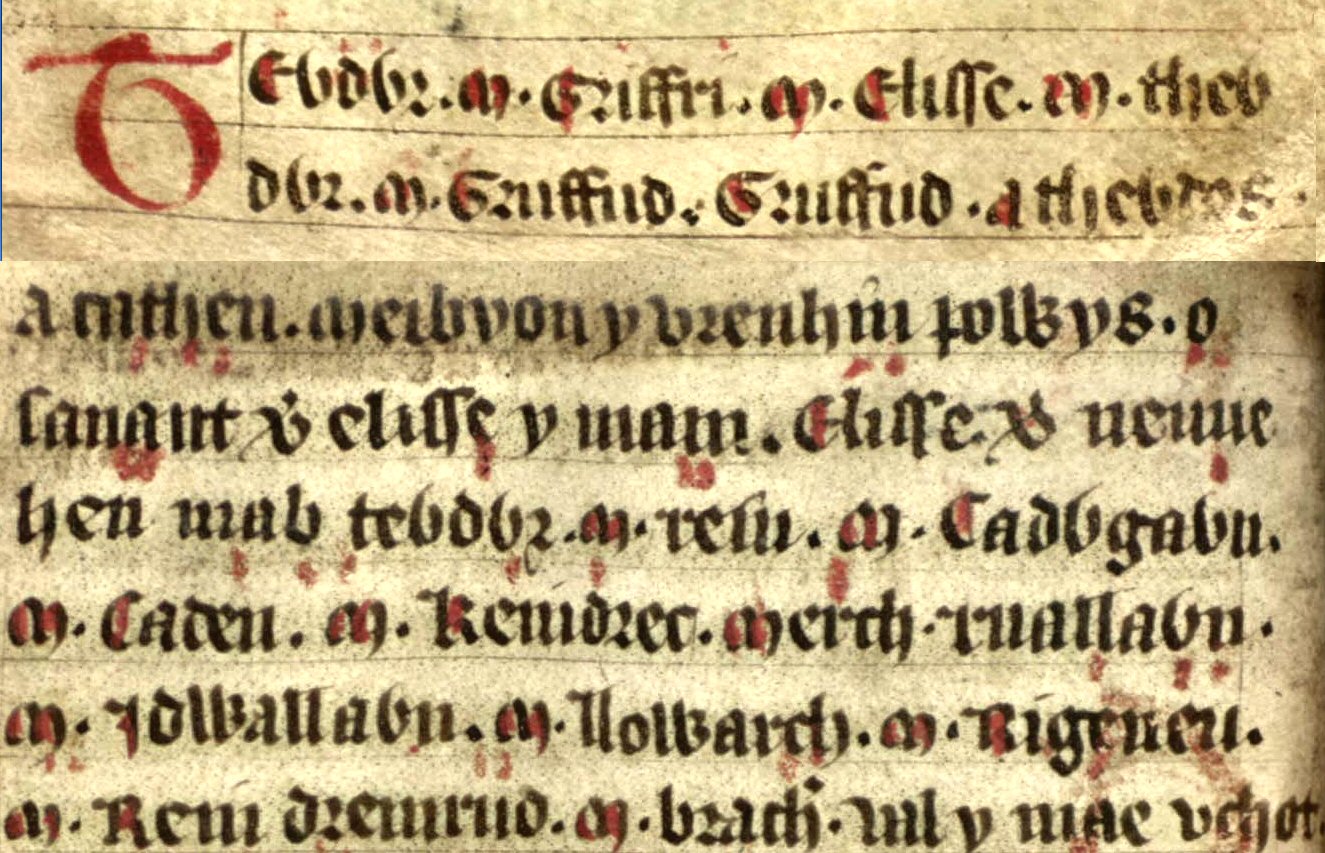 TEỽdỽr. M. Griffri. M. Elisse. M. theỽ
dỽr. M. Gruffud. Gruffud. a theỽdỽs.
A cathen. meibyon y brenhin polỽys. o
sanant v̛ch elisse y mam. Elisse. v̛ch neuue
hen mab teỽdỽr. m. resu. M. Cadỽgaỽn.
M. Cadeu. M. Keindrec. Merch. ruallaỽn.
M. Idỽallaỽn. M. lloỽarch. M. Rigeneu.
M. Rein dremrud. M. brach̛. val y mae vchot.